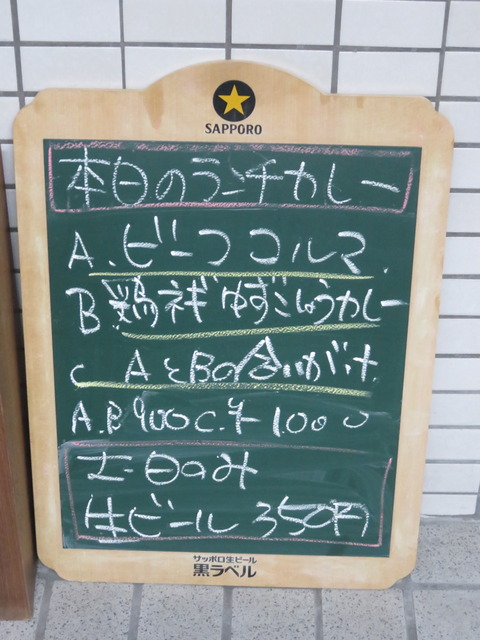 SAPPORO
本日のランチカレー
A. ビーフコルマ
B 鶏ネギゆずこしょうカレー
C AとBの合いがけ
A.B 900 C.
土・日のみ
生ビール 350円
サッポロ生ビール
黒ラベル